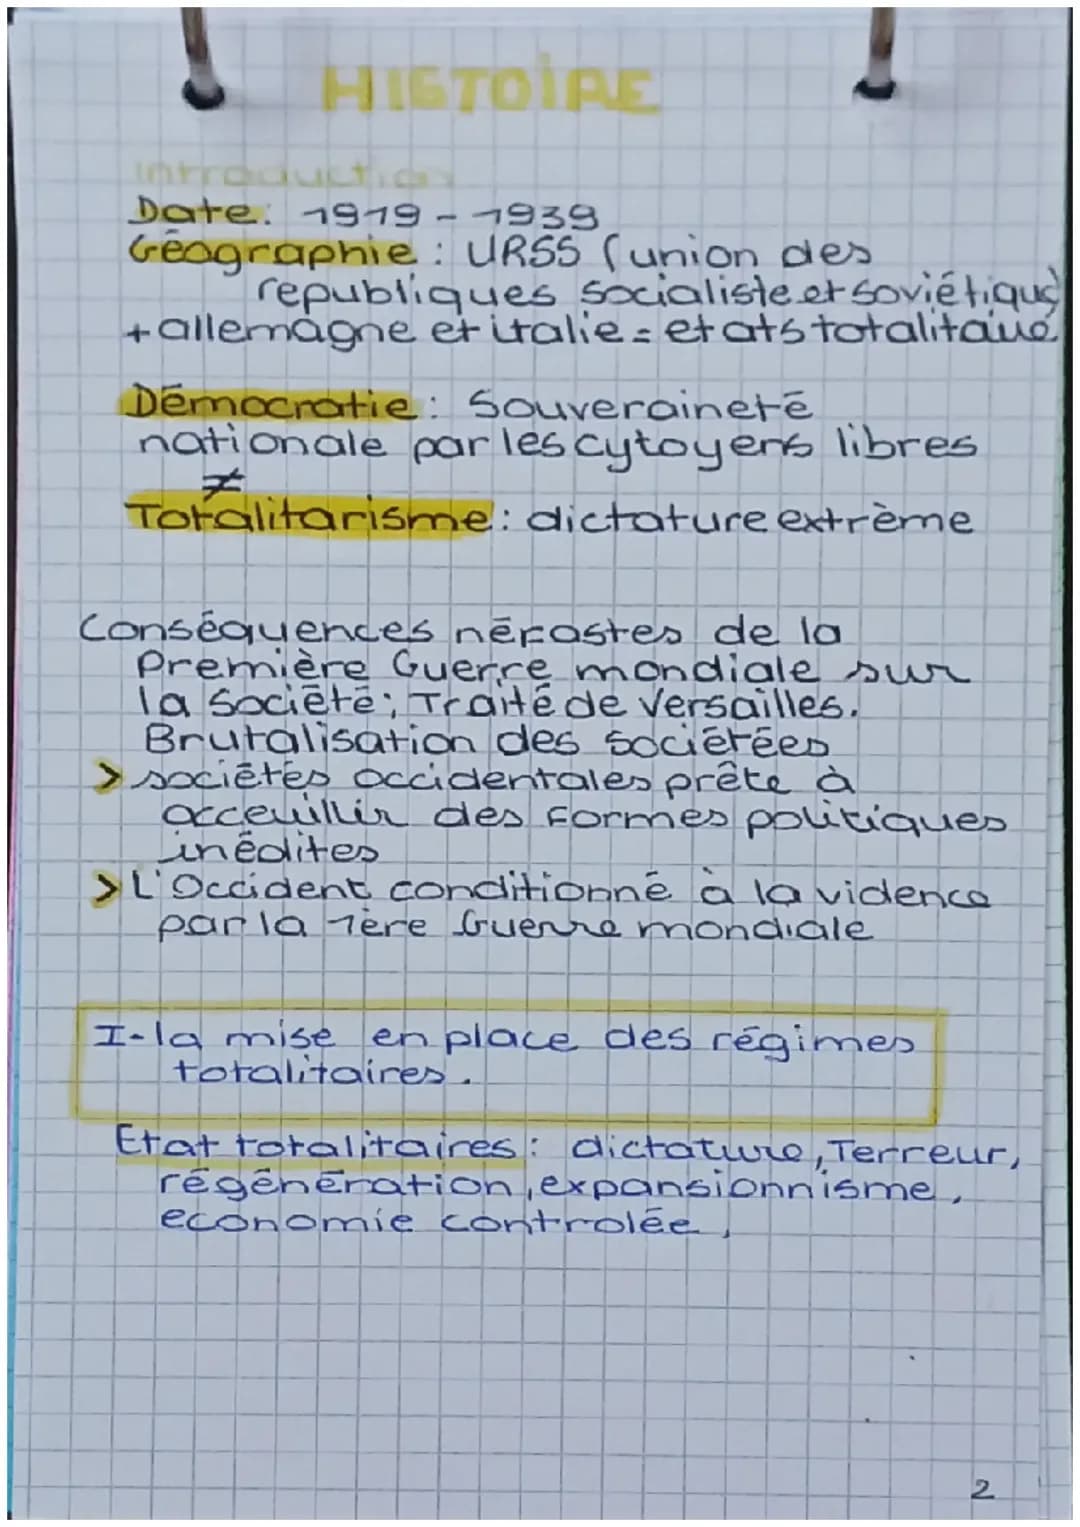 HISTOIRE
Introduction
Date: 1919 - 1939
Géographie : URSS (union des
republiques socialiste et soviétique)
+ allemagne et italie = etats totalitaire
Démocratie : Souveraineté
nationale par les cytoyens libres
≠
Totalitarisme : dictature extrème
Conséquences néfastes de la
Première Guerre mondiale sur
la société; Traité de Versailles.
Brutalisation des sociétées
> sociétés occidentales prête à
acceuillir des formes politiques
inédites
> L'Occident conditionné à la vidence
par la 1ère Guerre mondiale
I-la mise en place des régimes
totalitaires.
Etat totalitaires : dictature, Terreur,
régénération, expansionnisme,
economie controlée,
2